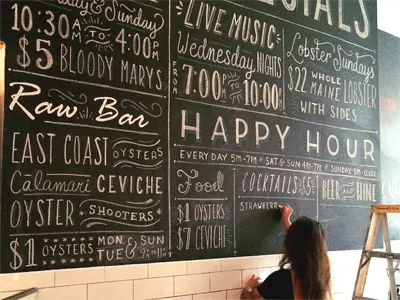 & Sunday
10:30 AM TO 4:00 PM
$5 BLOODY MARYS
Raw Bar
EAST COAST OYSTERS
Calamari CEVICHE
OYSTER SHOOTERS
$1 OYSTERS MON, TUE & SUN
SPECIALS
LIVE MUSIC
Wednesday NIGHTS
FROM 7:00 TO 10:00
Lobster Sundays
$22 WHOLE MAINE LOBSTER
WITH SIDES
HAPPY HOUR
EVERY DAY 5PM-7PM SAT & SUN 4PM-7PM SUNDAY 9PM-CLOSE
Food
$1 OYSTERS
$7 CEVICHE
COCKTAILS $5
STRAWBERR
BEER and WINE